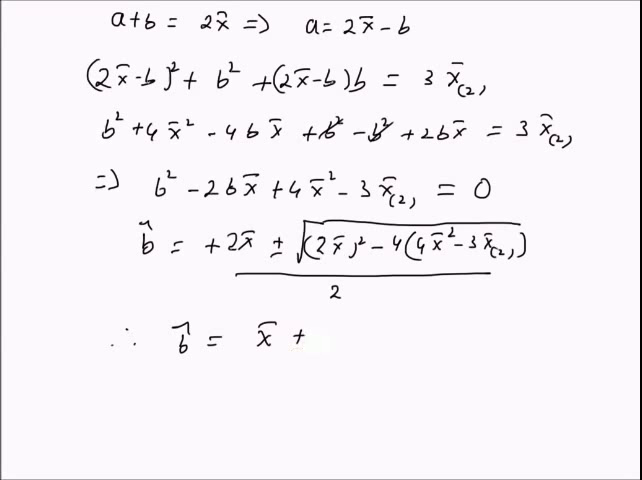 a+b = 2x̄ => a = 2x̄ - b
(2x̄-b)² + b² + (2x̄-b)b = 3 x̄(2,
b² + 4x̄² - 4bx̄ + b² - b² + 2bx̄ = 3 x̄(2,
=> b² - 2bx̄ + 4x̄² - 3x̄(2, = 0
b̂ = +2x̄ ± √(2x̄)² - 4(4x̄² - 3x̄(2,)
2
∴ b̂ = x̄ +